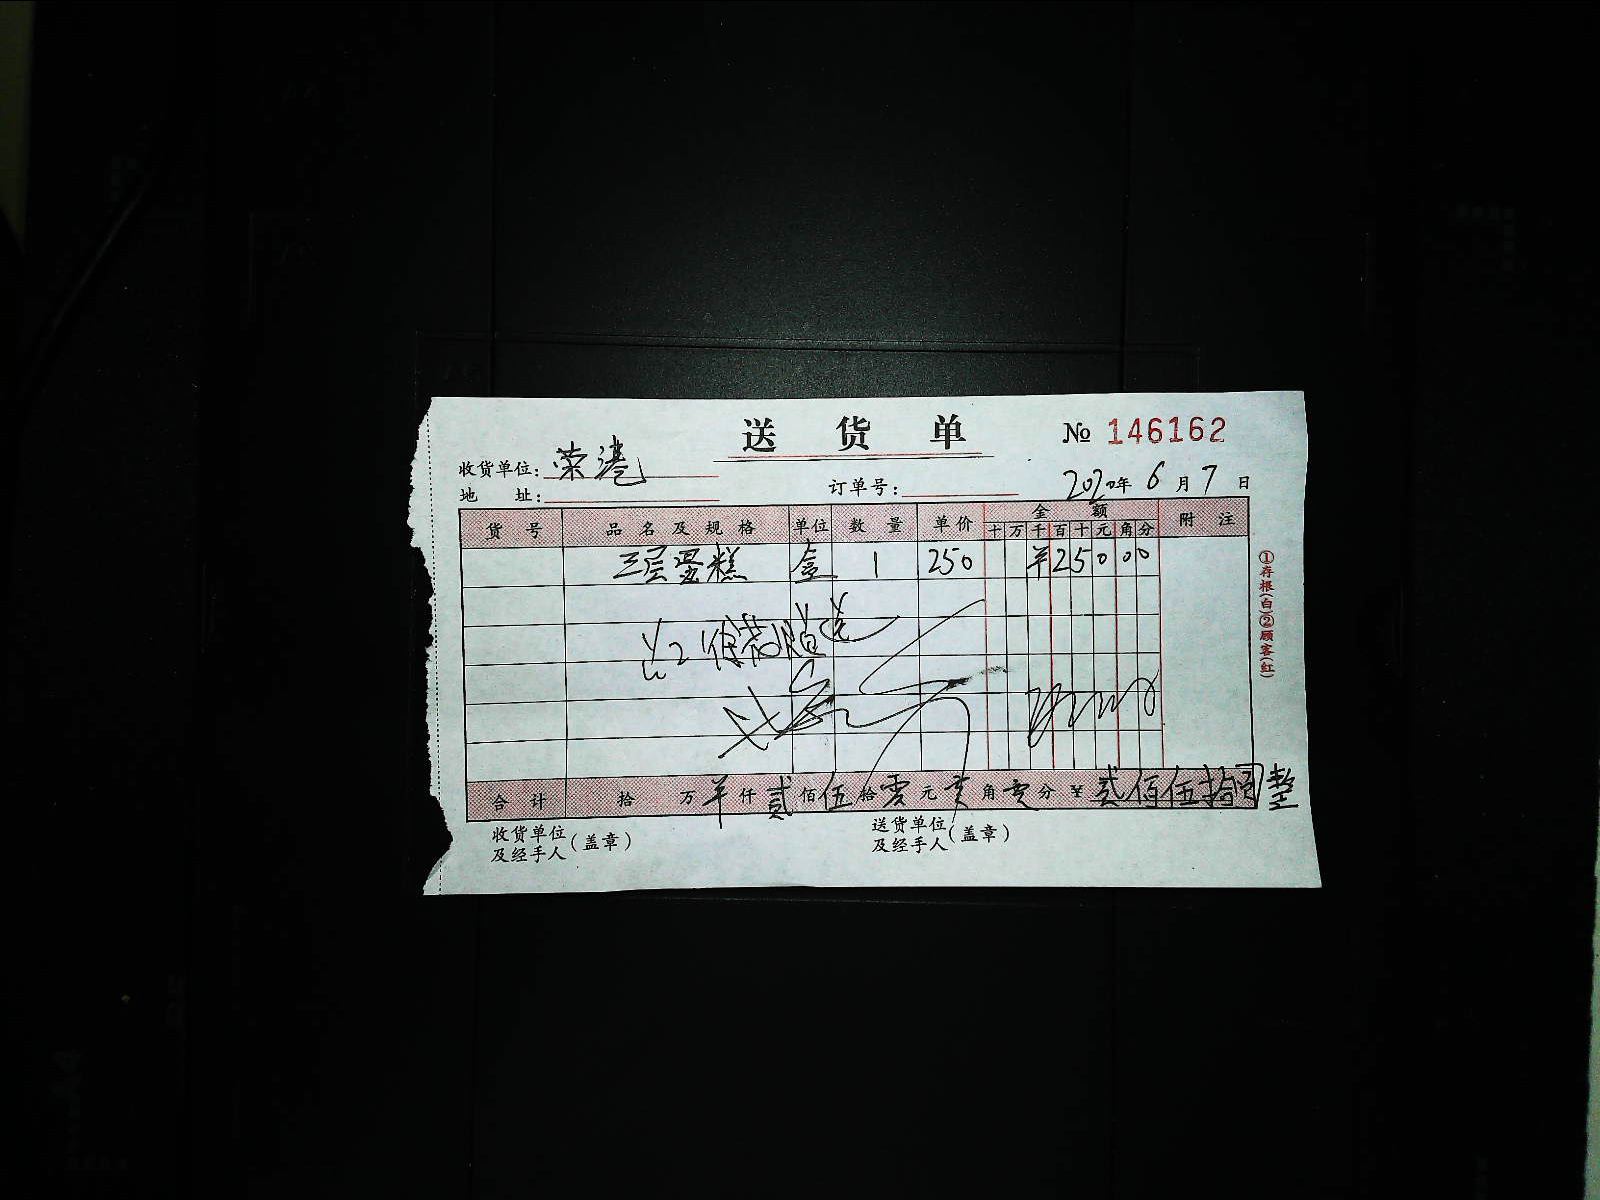 送 货 单 № 146162
收货单位: 荣港
地 址: 订单号: 2020年 6 月 7 日
货 号 品 名 及 规 格 单位 数 量 单价 金 额 附 注
十 万 千 百 十 元 角 分
三层蛋糕 盒 1 250 ¥ 2 5 0 0 0
合 计 拾 万 ¥ 仟 贰 佰 伍 拾 零 元 零 角 零 分 ¥ 贰佰伍拾圆整
收货单位及经手人(盖章) 送货单位及经手人(盖章)
①存根(白)②顾客(红)